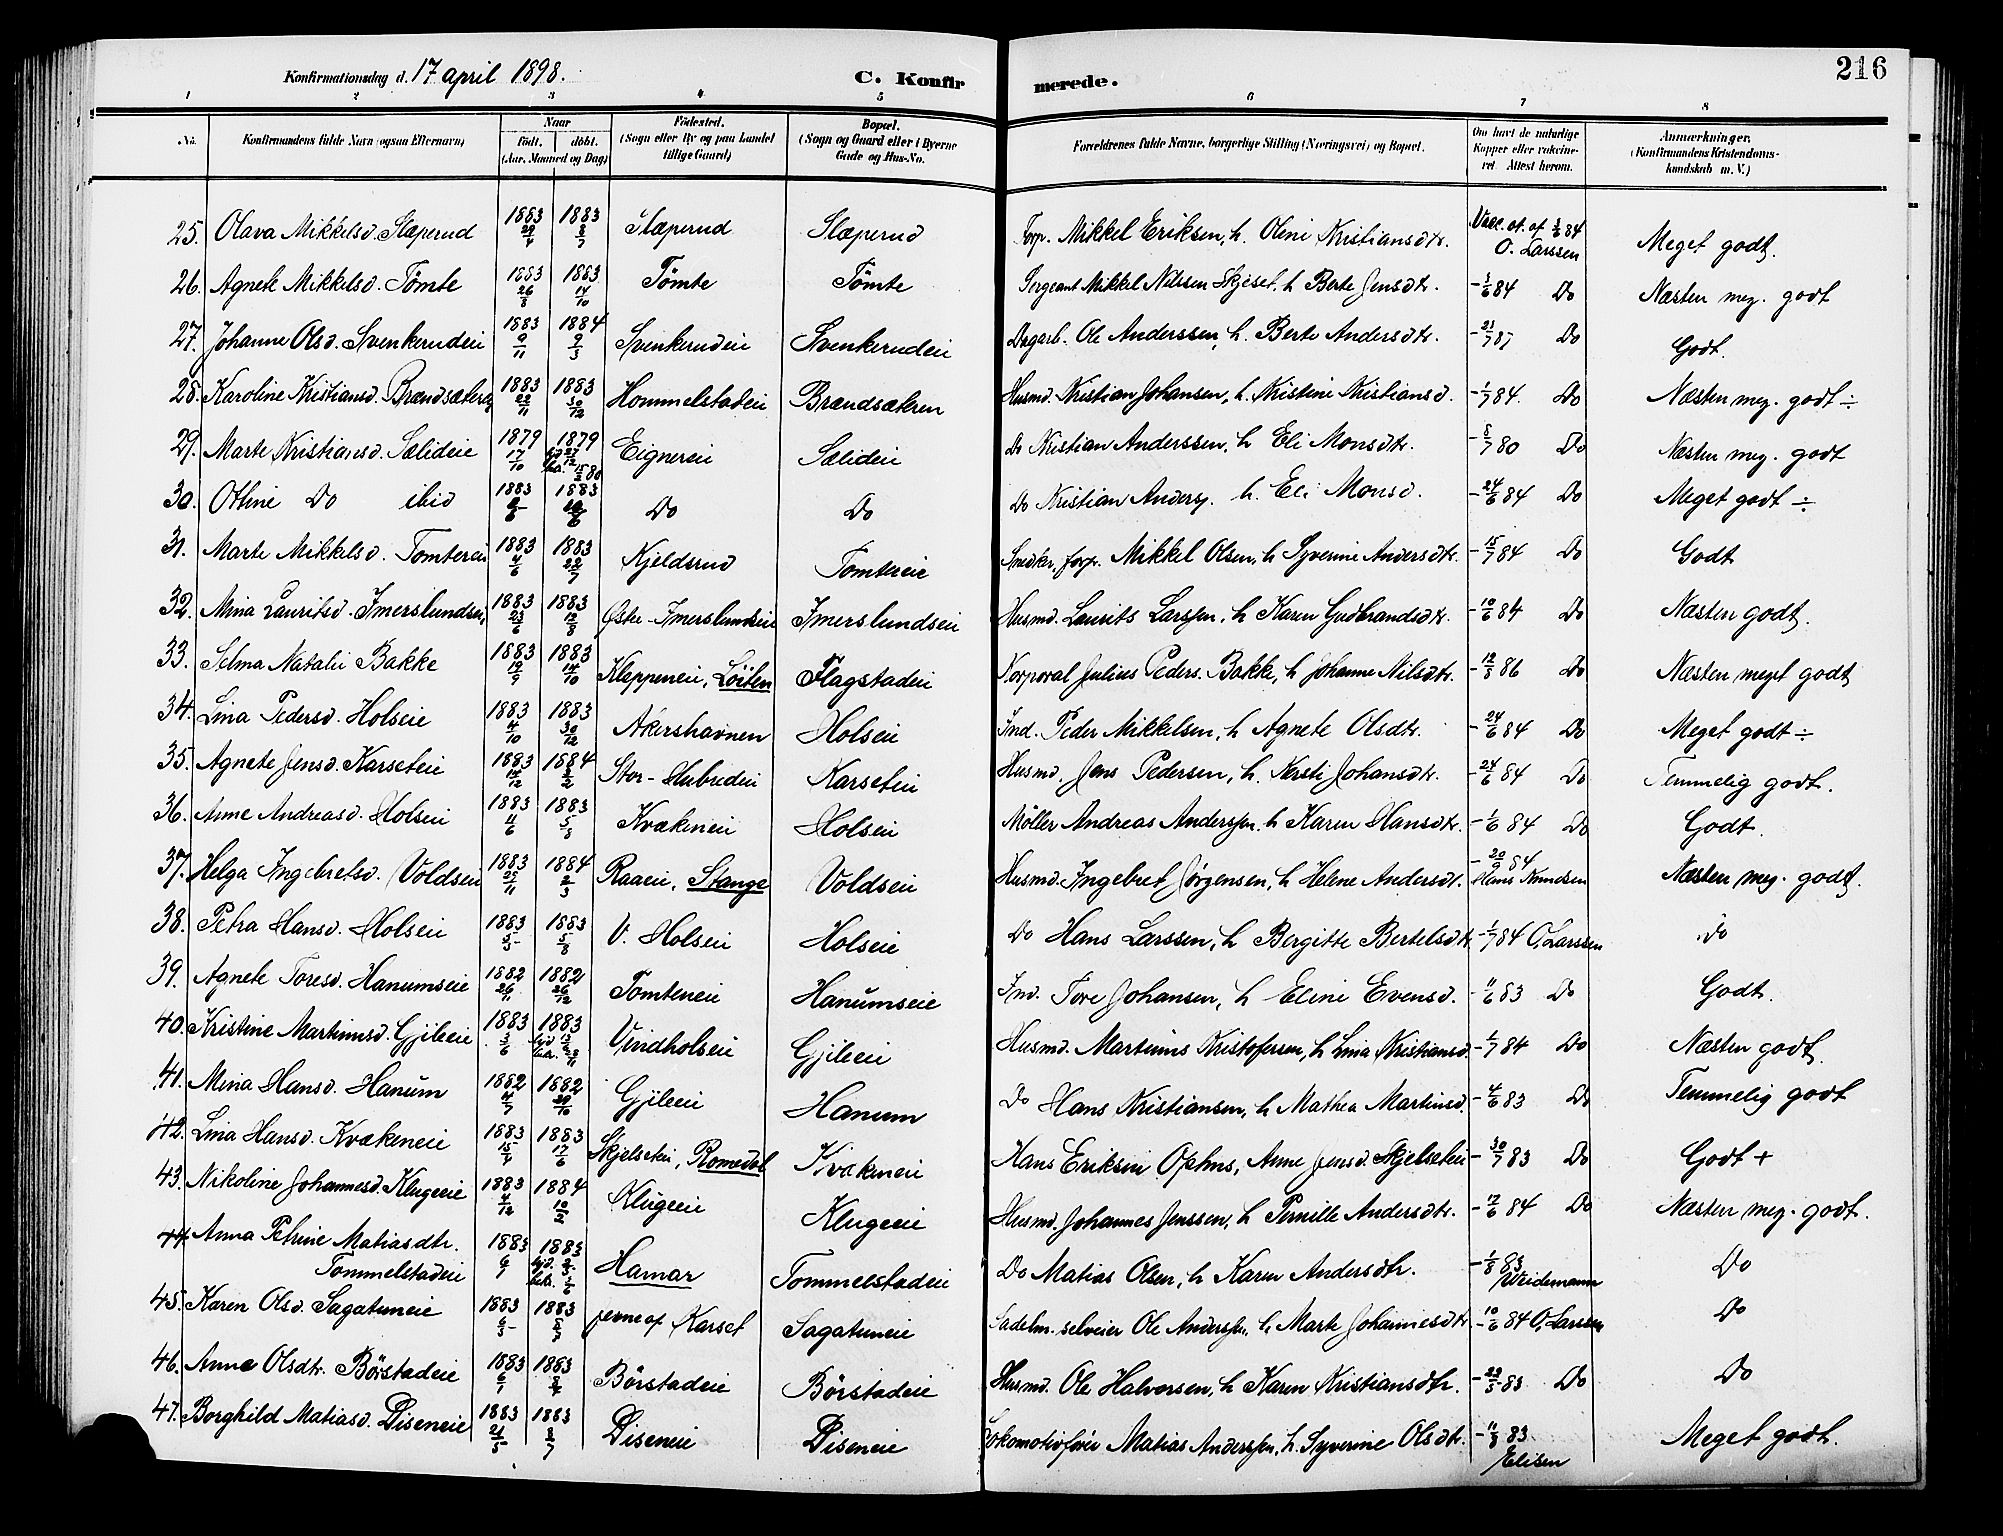 Konfirmationsdag d. 17 april 1898. C. Konfirmerede. 216
1 2 3 4 5 6 7 8
No. Konfirmandens fulde Navn (ogsaa Efternavn) Naar födt. döbt. (Aar, Maaned og Dag) Födested. (Sogn eller By og paa Landet tillige Gaard) Bopæl. (Sogn og Gaard eller i Byerne Gade og Hus-No. Forældrenes fulde Navne, borgerlige Stilling (Næringsvei) og Bopæl. Om havt de naturlige Kopper eller vakcineret. Attest herom. Anmærkninger. (Konfirmandens Kristendomskundskab m. V.)
25. Olava Mikkelsd. Slæperud 1883 29/4 1883 8/7 Slæperud Slæperud Forp. Mikkel Eriksen, h. Oline Kristiansdtr. Vacc. at. af 84 O. Larssen Meget godt.
26. Agnete Mikkelsd. Tömte 1883 26/8 1883 14/10 Tömte Tömte Sergeant Mikkel Nilssen Skjeset, h Berte Jensdtr. - 84 Do Næsten meg. godt
27. Johanne Olsd. Svenkerudeie 1883 9/11 1884 9/3 Svenkerudeie Svenkerudeie Dagarb. Ole Anderssen, h. Berte Andersdtr. - 21/7 Do Godt.
28. Karoline Kristiansd. Brændsæteren 1883 22/11 1883 30/12 Hommelstadeie Brændsæteren Husmd. Kristian Johansen, h. Kristine Kristiansd. - 1/7 84. Do Næsten meg. godt ÷
29. Marte Kristiansd. Sælideie 1879 17/10 1879 Eignereie Sælideie Do Kristian Anderssen, h Eli Monsdtr. - 8/7 80 Do Næsten meg. godt
30. Otline Do ibid 1883 1883 Do Do Do Kristian Anders. h. Eli Monsd. - 24/6 84 Do Meget godt ÷
31. Marte Mikkelsd. Tomtereie 1883 4/6 1883 22/7 Kjeldsrud Tomtereie Snedker, forp. Mikkel Olsen, h Syverine Andersdtr. - 15/7 84 Do Godt
32. Mina Lauritsd. Imerslundseie, 1883 23/6 1883 12/8 Østre-Imerslundseie Imerslundseie Husmd. Laurits Larssen, h Karen Gudbrandsdtr. - 10/6 84 Do Næsten godt.
33. Selma Natalie Bakke 1883 19/9 1883 14/10 Kleppeneie, Löiten Flagstadeie Korporal Julius Peders. Bakke, h Johanne Nilsdtr. - 12/3 86 Do Næsten meget godt
34. Lina Pedersd. Holseie 1883 4/10 1883 30/12 Akershavnen Holseie Ind. Peder Mikkelsen, h Agnete Olsdtr. - 24/6 84 Do Meget godt ÷
35. Agnete Jensd. Karseteie 1883 14/12 1884 2/2 Stor-Hubredeie Karseteie Husmd. Jens Pedersen, h. Kersti Johansdtr. - 24/6 84 Do Temmelig godt.
36. Anne Andreasd. Holseie 1883 11/6 1883 5/8 Kvækeneie Holseie Møller Andreas Anderssen. h Karen Hansdtr. - 1/6 84 Do Godt.
37. Helga Ingebretsd. Voldseie 1883 25/11 1884 2/3 Raaeie, Stange Voldseie Husmd. Ingebret Jørgensen, h Helene Andersdt. - 20/9 84 Hans Knudsen Næsten meg. godt.
38. Petra Hansd. Holseie 1883 5/5 1883 5/8 V. Holseie Holseie Do Hans Larssen, h Bergitte Bertelsdtr. - 1/7 84 O. Larssen Do
39. Agnete Toresd. Hanumseie 1882 26/11 1882 26/12 Tomteneie Hanumseie Ind. Tore Johansen, h Eline Evensd. - 11/6 83 Do Godt.
40. Kristine Martinusd. Gjileeie 1883 3/6 1883 Vindholseie Gjileeie Husmd. Martinius Kristofersen, h Lina Kristiansd. - 1/7 84 Do Næsten godt.
41. Mina Hansd. Hanum 1882 4/7 1882 29/10 Gjileeie Hanum Do Hans Kristiansen, h Mathea Martinsd. - 4/6 83 Do Temmelig godt
42. Lina Hansd. Kvækeneie 1883 15/4 1883 17/6 Skjelseteie, Romedal Kvækeneie Hans Eriksen Ophus, Anne Jensd. Skjelseteie - 30/7 83 Do Godt +
43. Nikoline Johannesd. Klugeeie 1883 4/12 1884 10/2 Klugeeie Klugeeie Husmd. Johannes Jenssen, h Pernille Andersdtr. - 17/6 84 Do Næsten meg. godt.
44. Anna Petrine Matiasdtr. Tommelstadeie 1883 6/1 1883 Hamar Tommelstadeie Do Matias Olsen, h Karen Andersdtr. - 1/8 83 Weidemann Do
45. Karen Olsd. Sagatuneie 1883 6/5 1883 Karset Sagatuneie Sadelm. selveier Ole Anderssen, h. Marte Johannesdtr. - 10/6 84 O. Larssen Do
46. Anne Olsdtr. Börstadeie 1883 6/1 1883 Börstadeie Börstadeie Husmd. Ole Halvorsen, h Karen Kristiansdtr. - 23/5 83 Do Do
47. Borghild Matiasd. Diseneie 1883 21/5 1883 8/7 Diseneie Diseneie Lokomotivförer Matias Anderssen, h. Syverine Olsdtr. - 11/8 83. Elisen Meget godt.